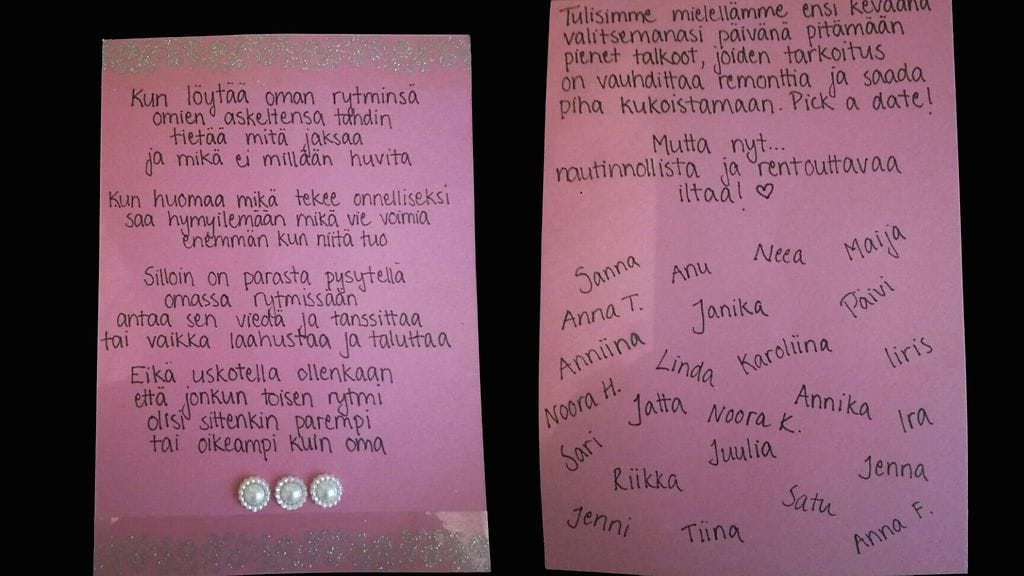 Kun löytää oman rytminsä
omien askeltensa tahdin
tietää mitä jaksaa
ja mikä ei millään huvita
Kun huomaa mikä tekee onnelliseksi
saa hymyilemään mikä vie voimia
enemmän kun niitä tuo
Silloin on parasta pysytellä
omassa rytmissään
antaa sen viedä ja tanssittaa
tai vaikka laahustaa ja taluttaa
Eikä uskotella ollenkaan
että jonkun toisen rytmi
olisi sittenkin parempi
tai oikeampi kuin oma
Tulisimme mielellämme ensi keväänä
valitsemanasi päivänä pitämään
pienet talkoot, joiden tarkoitus
on vauhdittaa remonttia ja saada
piha kukoistamaan. Pick a date!
Mutta nyt...
nautinnollista ja rentouttavaa
iltaa! ♡
Sanna Anu Neea Maija
Anna T. Janika Päivi
Anniina Linda Karoliina Iiris
Noora H. Jatta Noora K. Annika Ira
Sari Juulia
Riikka Jenna
Satu
Jenni Tiina Anna F.